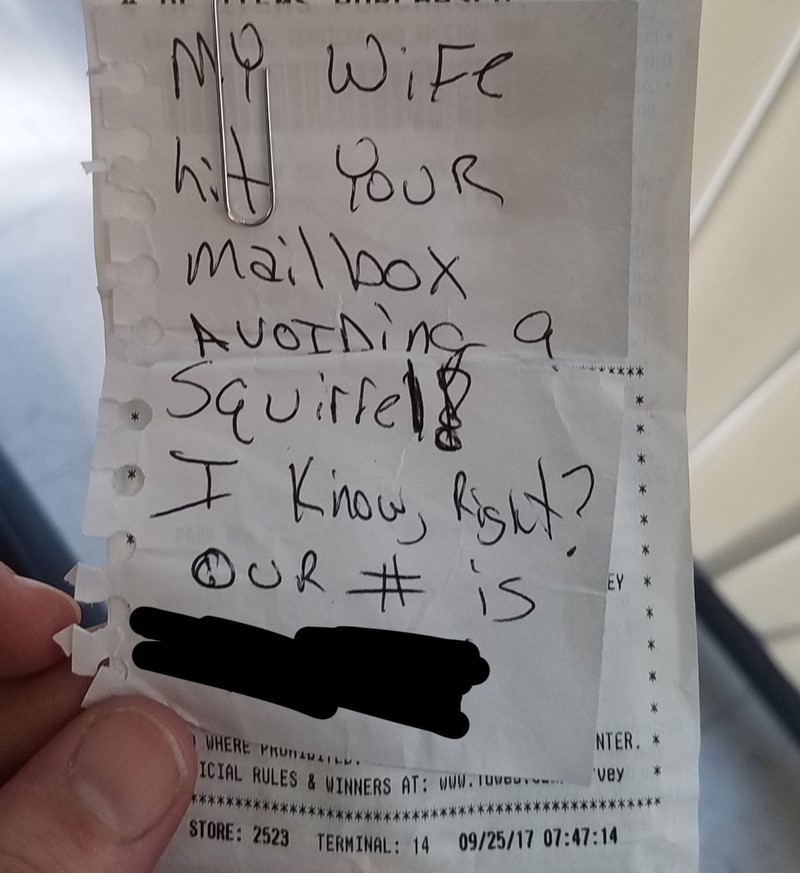 MY WiFe
hit YOUR
mailbox
AVOIDing a
Squirrel!
I Know, Right?
OUR # is
EY *
WHERE PROHIBITED.
NTER. *
ICIAL RULES & WINNERS AT: WWW.
vey *
****************************************
STORE: 2523 TERMINAL: 14 09/25/17 07:47:14